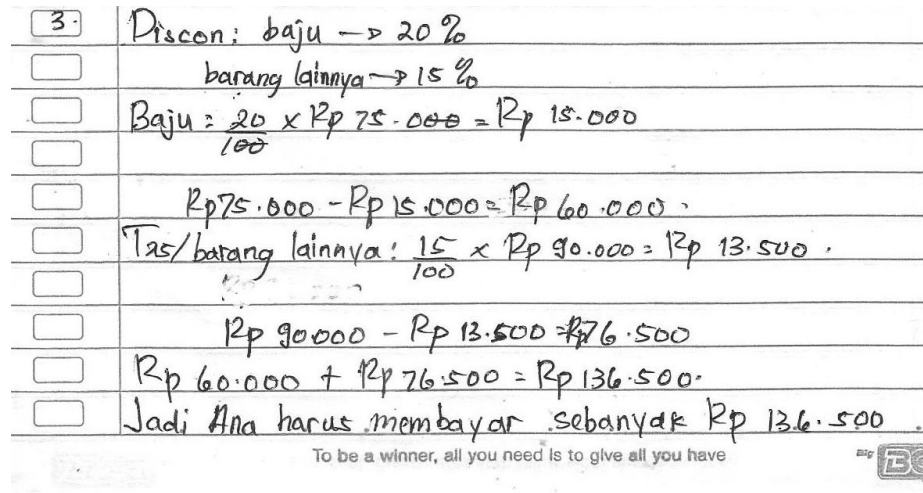 3.
Discon: baju → 20%
barang lainnya → 15%
Baju = 20/100 x Rp 75.000 = Rp 15.000
Rp75.000 - Rp 15.000 = Rp 60.000.
Tas/barang lainnya: 15/100 x Rp 90.000 = Rp 13.500.
Rp 90.000 - Rp 13.500 = Rp 76.500
Rp 60.000 + Rp 76.500 = Rp 136.500.
Jadi Ana harus membayar sebanyak Rp 136.500.
To be a winner, all you need is to give all you have
Big